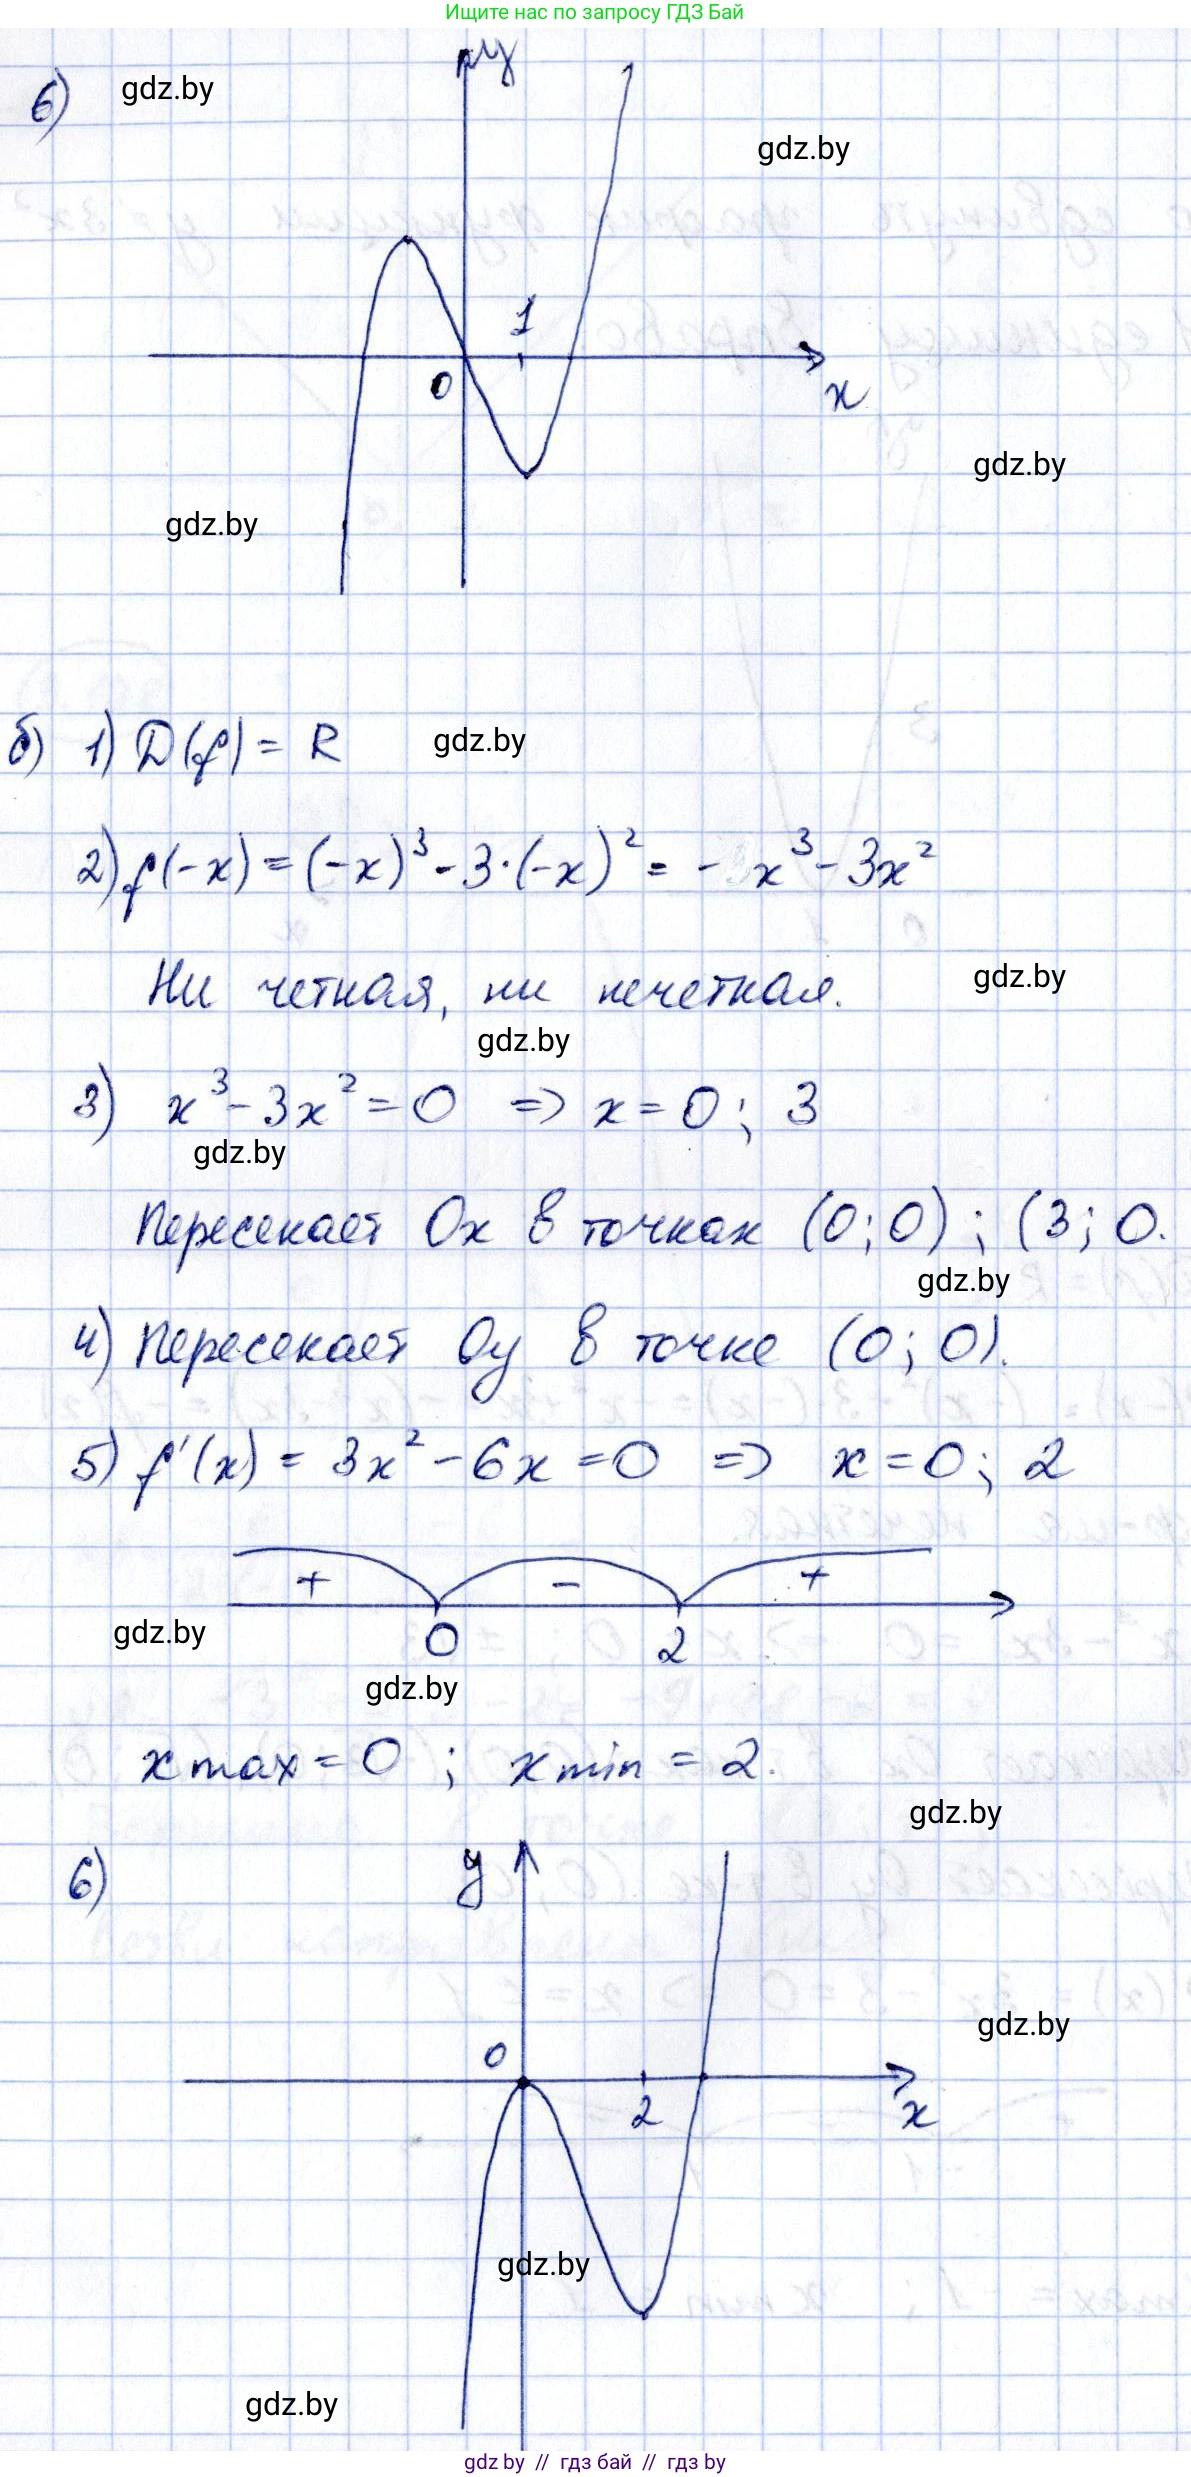 Ищите нас по запросу ГДЗ Бай
6)
gdz.by
y
gdz.by
1
0
x
gdz.by
gdz.by
б) 1) D(f) = R
gdz.by
2) f(-x) = (-x)³ - 3·(-x)² = - x³ - 3x²
Ни четная, ни нечетная.
gdz.by
gdz.by
3) x³ - 3x² = 0 => x = 0; 3
gdz.by
Пересекает Ox в точках (0; 0); (3; 0.
gdz.by
4) Пересекает Oy в точке (0; 0).
5) f'(x) = 3x² - 6x = 0 => x = 0; 2
+ - +
0 2
gdz.by
gdz.by
x max = 0 ; x min = 2.
gdz.by
6)
y
gdz.by
0
2
x
gdz.by
gdz.by
gdz by // гдз бай // гдз by